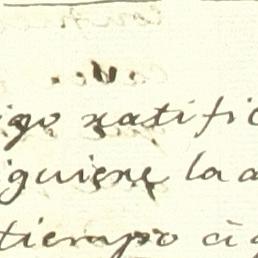 igo ratific
iguiene la a
tiempo à q